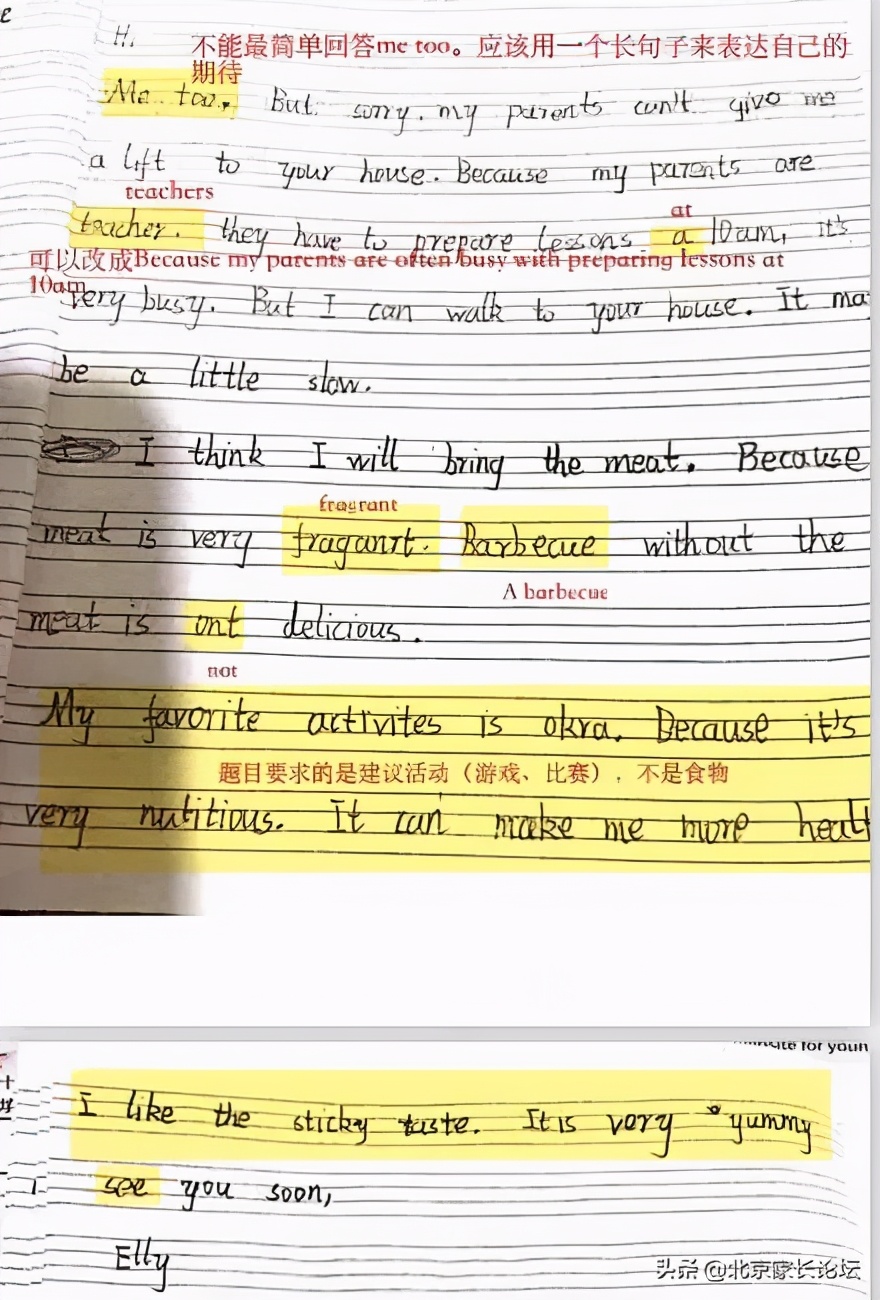 Hi
不能最简单回答me too。应该用一个长句子来表达自己的
期待
Me too. But sorry. my parents can't give me
a lift to your house. Because my parents are
teachers
teacher. they have to prepare lessons a 10am, it's
at
可以改成Because my parents are often busy with preparing lessons at
10am
very busy. But I can walk to your house. It ma
be a little slow.
I think I will bring the meat. Because
fragrant
meat is very fraganrt. Barbecue without the
A barbecue
meat is ont delicious.
not
My favorite activites is okra. Because it's
题目要求的是建议活动（游戏、比赛），不是食物
very nutitious. It can make me more healt
for youn
I like the sticky taste. It is very yummy
see you soon,
Elly
头条 @北京家长论坛